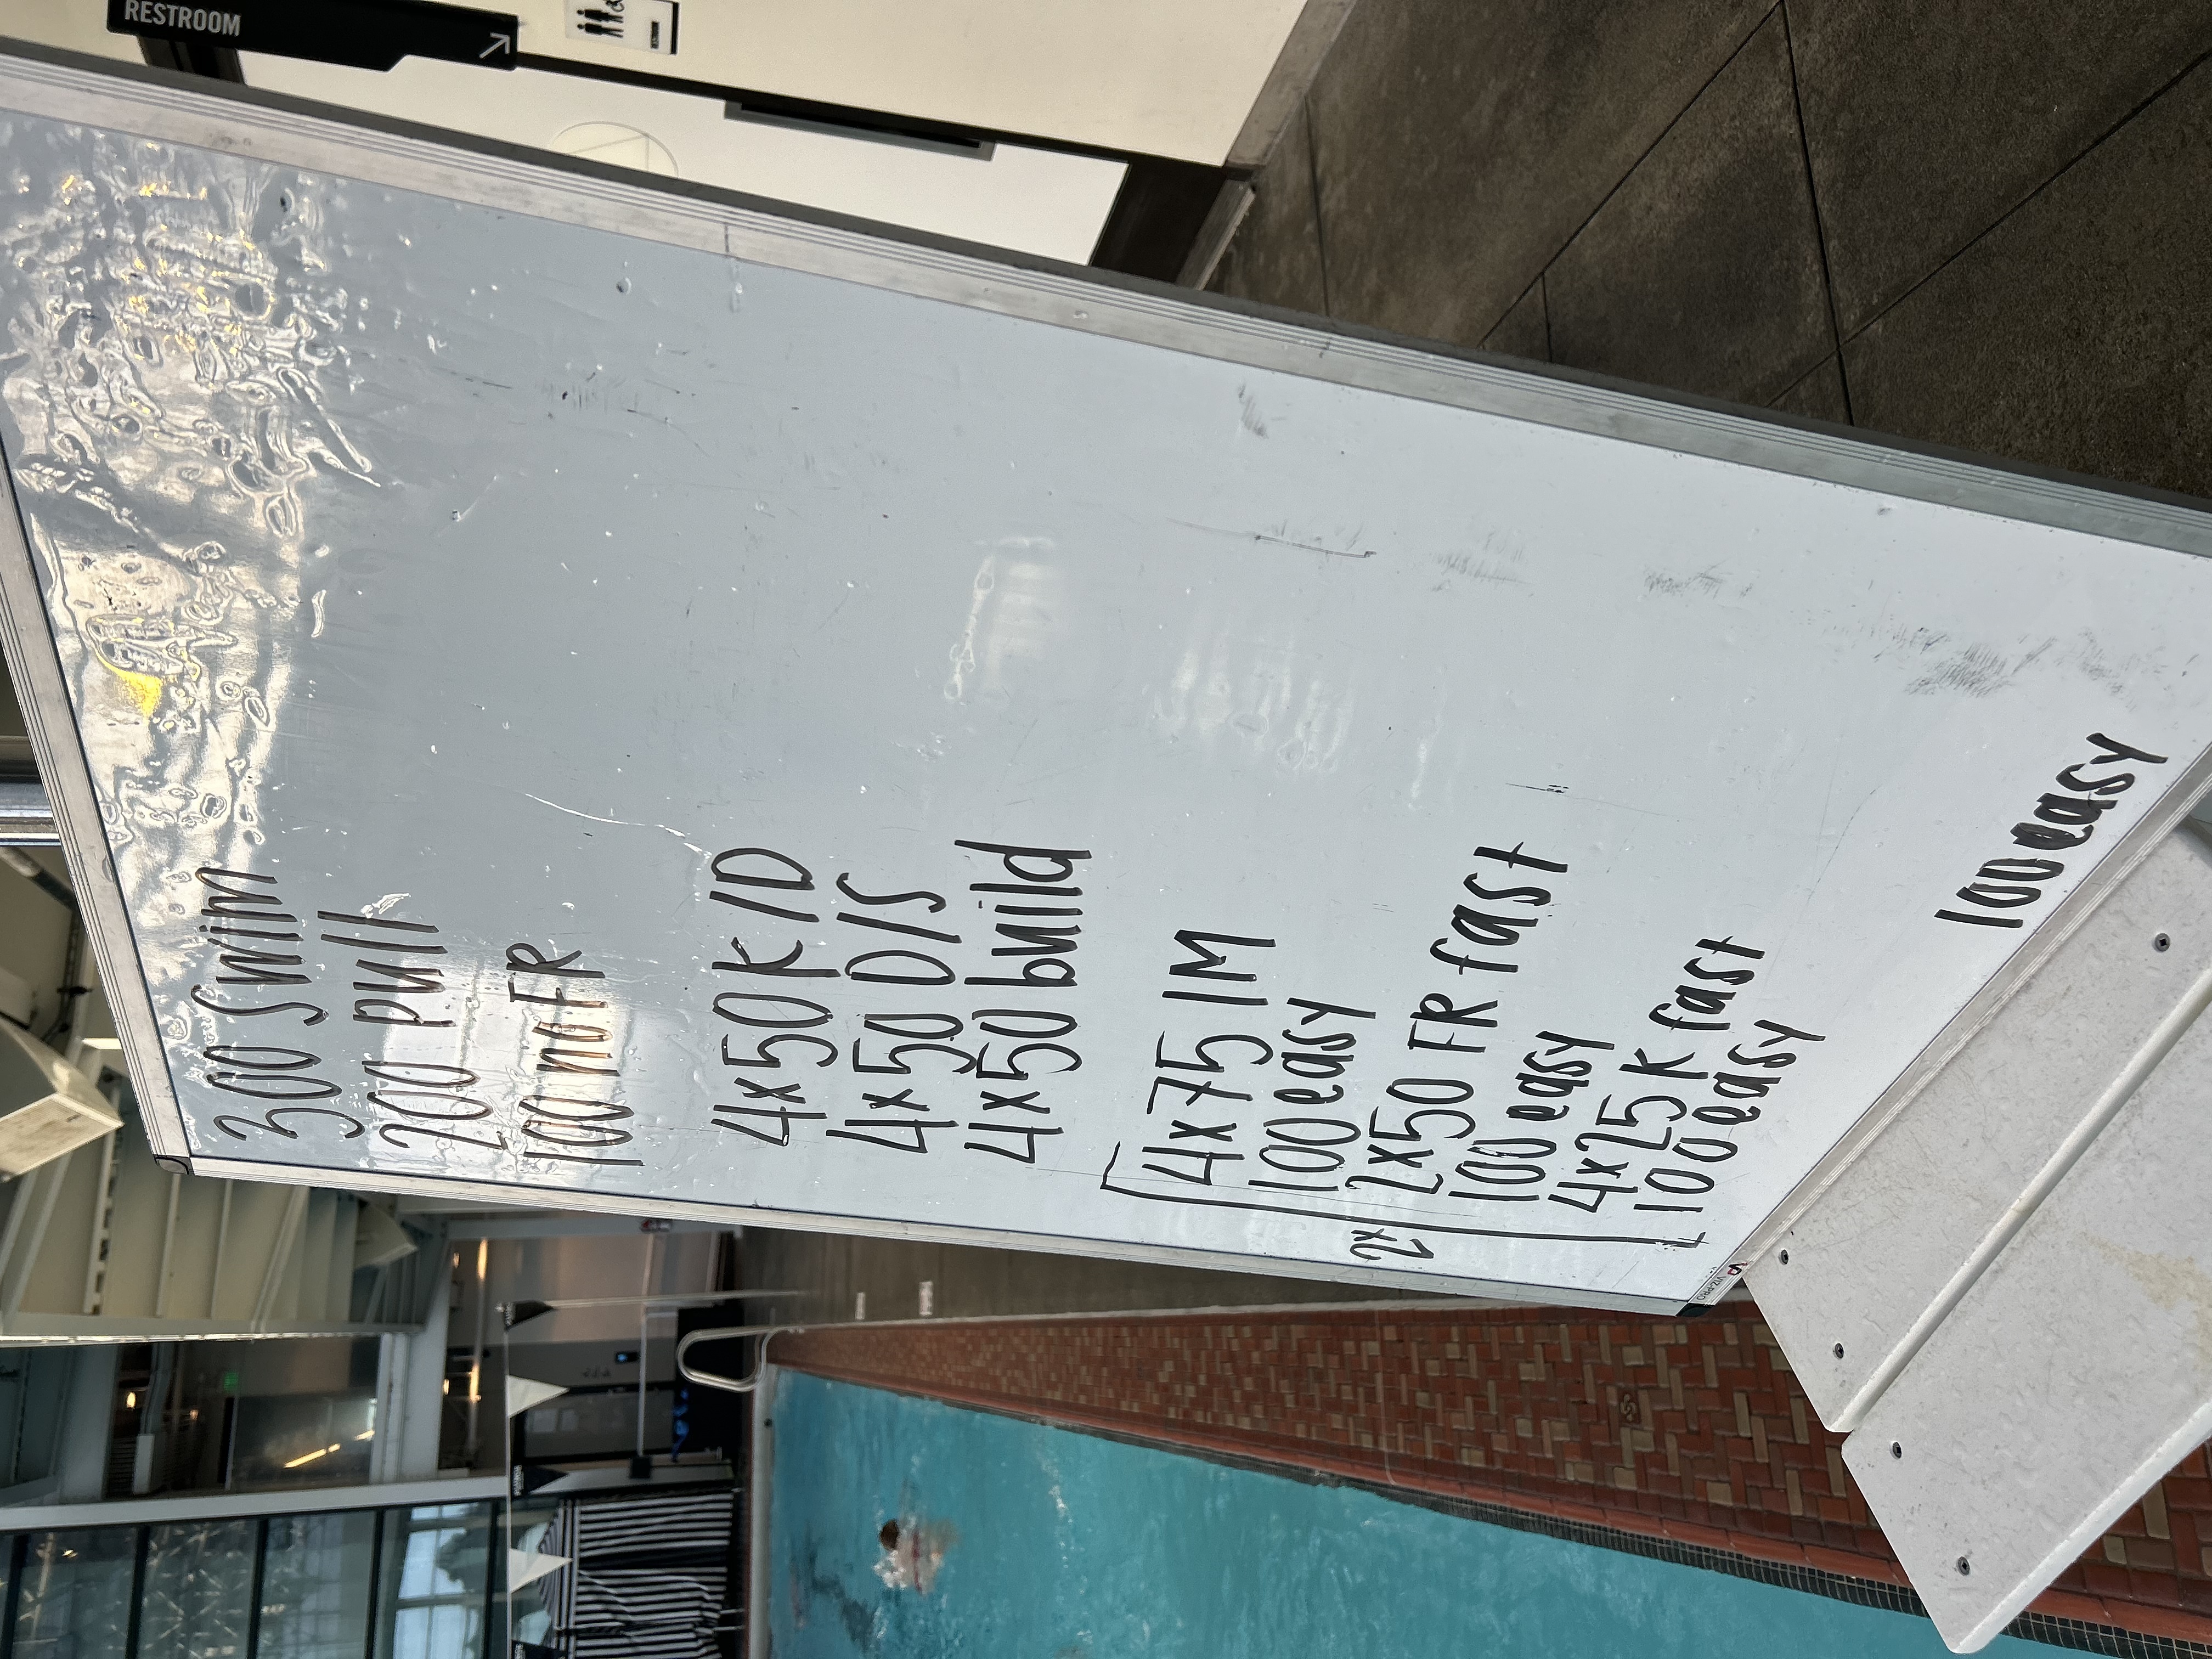 RESTROOM
300 swim
200 pull
100 no FR
4x50 K/D
4x50 D/S
4x50 build
4x75 IM
100 easy
2x
2x50 FR fast
100 easy
4x25 K fast
100 easy
100 easy
VIZ-PRO